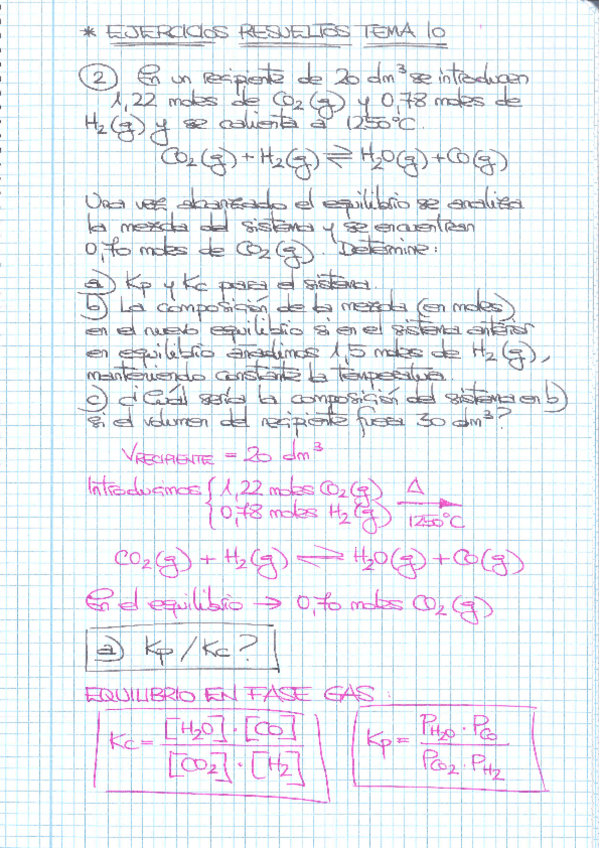 * EJERCICIOS RESUELTOS TEMA 10
② En un recipiente de 20 dm³ se introducen
1,22 moles de CO₂(g) y 0,78 moles de
H₂(g) y se calienta a 1250°C.
CO₂(g) + H₂(g) ⇌ H₂O(g) + CO(g)
Una vez alcanzado el equilibrio se analiza
la mezcla del sistema y se encuentran
0,70 moles de CO₂(g). Determine:
a) Kp y Kc para el sistema.
b) La composición de la mezcla (en moles)
en el nuevo equilibrio si en el sistema anterior
en equilibrio añadimos 1,5 moles de H₂(g),
manteniendo constante la temperatura.
c) ¿Cuál sería la composición del sistema en b)
si el volumen del recipiente fuera 30 dm³?
VRECIPIENTE = 20 dm³
Introducimos { 1,22 moles CO₂(g) Δ
0,78 moles H₂(g) 1250°C
CO₂(g) + H₂(g) ⇌ H₂O(g) + CO(g)
En el equilibrio → 0,70 moles CO₂(g)
a) Kp / Kc?
EQUILIBRIO EN FASE GAS:
Kc = [H₂O]·[CO] / [CO₂]·[H₂]
Kp = PH₂O · PCO / PCO₂ · PH₂